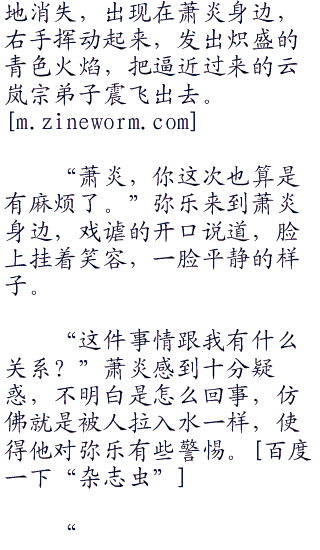 地消失，出现在萧炎身边，
右手挥动起来，发出炽盛的
青色火焰，把逼近过来的云
岚宗弟子震飞出去。
[m.zineworm.com]
“萧炎，你这次也算是
有麻烦了。”弥乐来到萧炎
身边，戏谑的开口说道，脸
上挂着笑容，一脸平静的样
子。
“这件事情跟我有什么
关系？”萧炎感到十分疑
惑，不明白是怎么回事，仿
佛就是被人拉入水一样，使
得他对弥乐有些警惕。[百度
一下“杂志虫”]
“